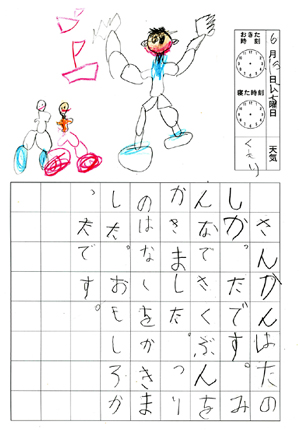 6月 日 曜日 天気 くもり
おきた時刻
寝た時刻
さんかんはたの
しかったです。み
んなでさくぶんを
かきました。つり
のはなしをかきま
した。おもしろか
ったです。